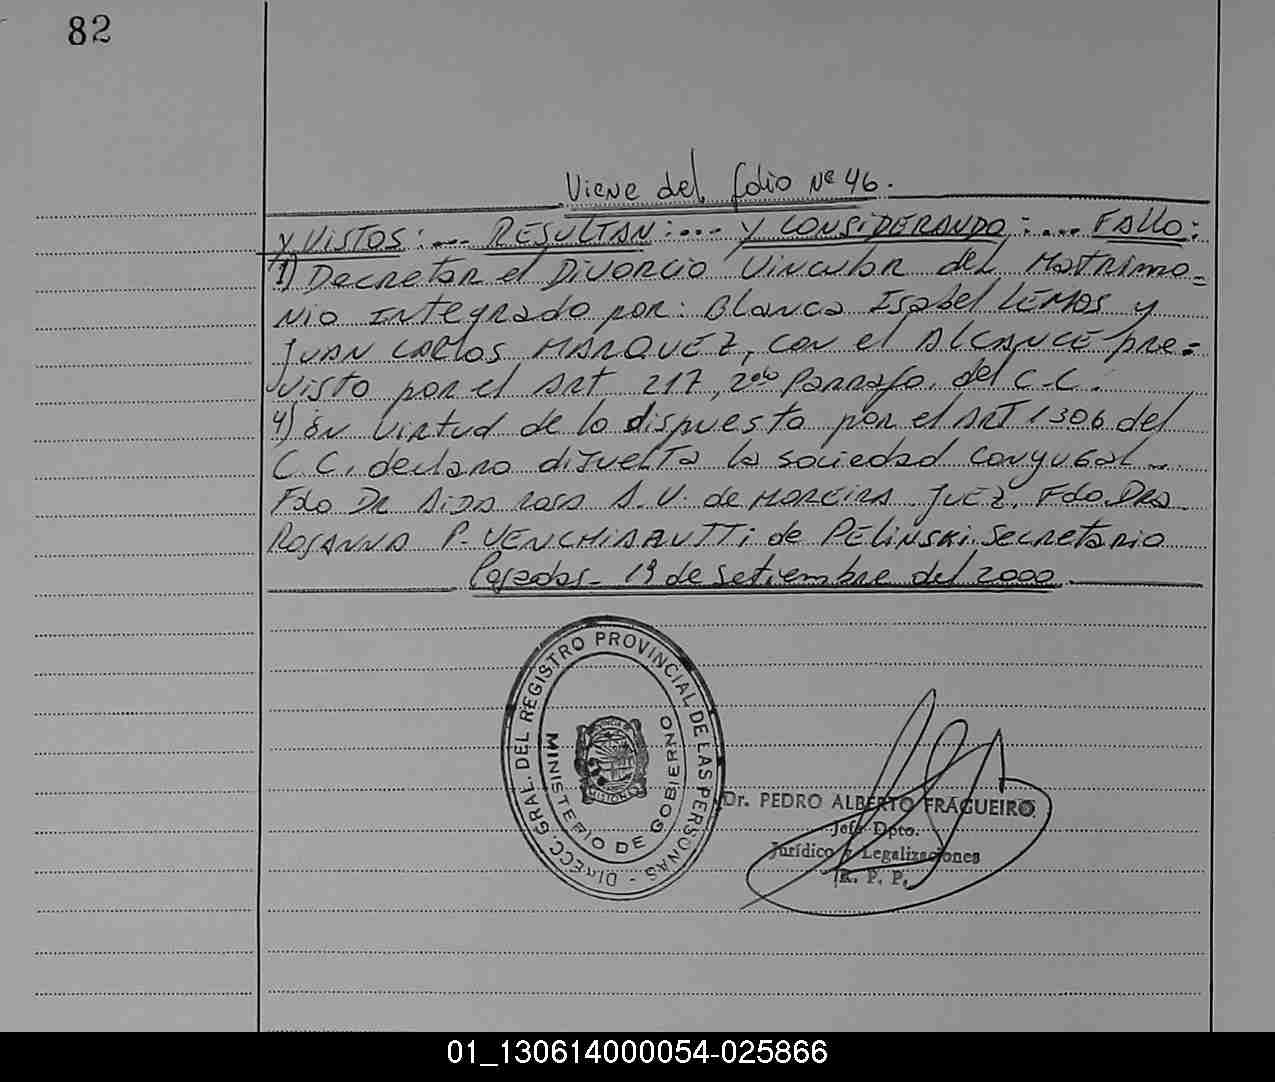 82
Viene del folio Nº 46.
y VISTOS: ... RESULTAN: ... y CONSIDERANDO: .... FALLO:
1) Decretar el Divorcio Vincular del Matrimo=
nio integrado por: Blanca Isabel LEMOS y
JUAN CARLOS MARQUEZ, con el ALCANCE pre=
visto por el Art 217, 2do Parrafo. del C.C.
4) En virtud de lo dispuesto por el ART 1306 del
C.C. declaro disuelta la sociedad conyugal...
Fdo DR AIDA ROSA A.V. de MOREIRA JUEZ. Fdo. DRA.
ROSANNA P. VENCHIARUTTI de PELINSKI. Secretario
Posadas - 19 de setiembre del 2000
DIRECC. GRAL. DEL REGISTRO PROVINCIAL DE LAS PERSONAS -
MINISTERIO DE GOBIERNO
MISIONES
Dr. PEDRO ALBERTO FRAGUEIRO
Jefe Dpto.
Jurídico y Legalizaciones
R. P. P.
01_130614000054-025866